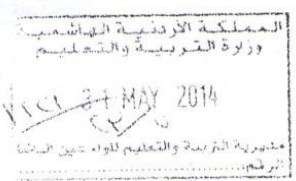 المملكة الأردنية الهاشمية
وزارة التربية والتعليم
31 MAY 2014
مديرية التربية والتعليم للواء عين الباشا
الرقم